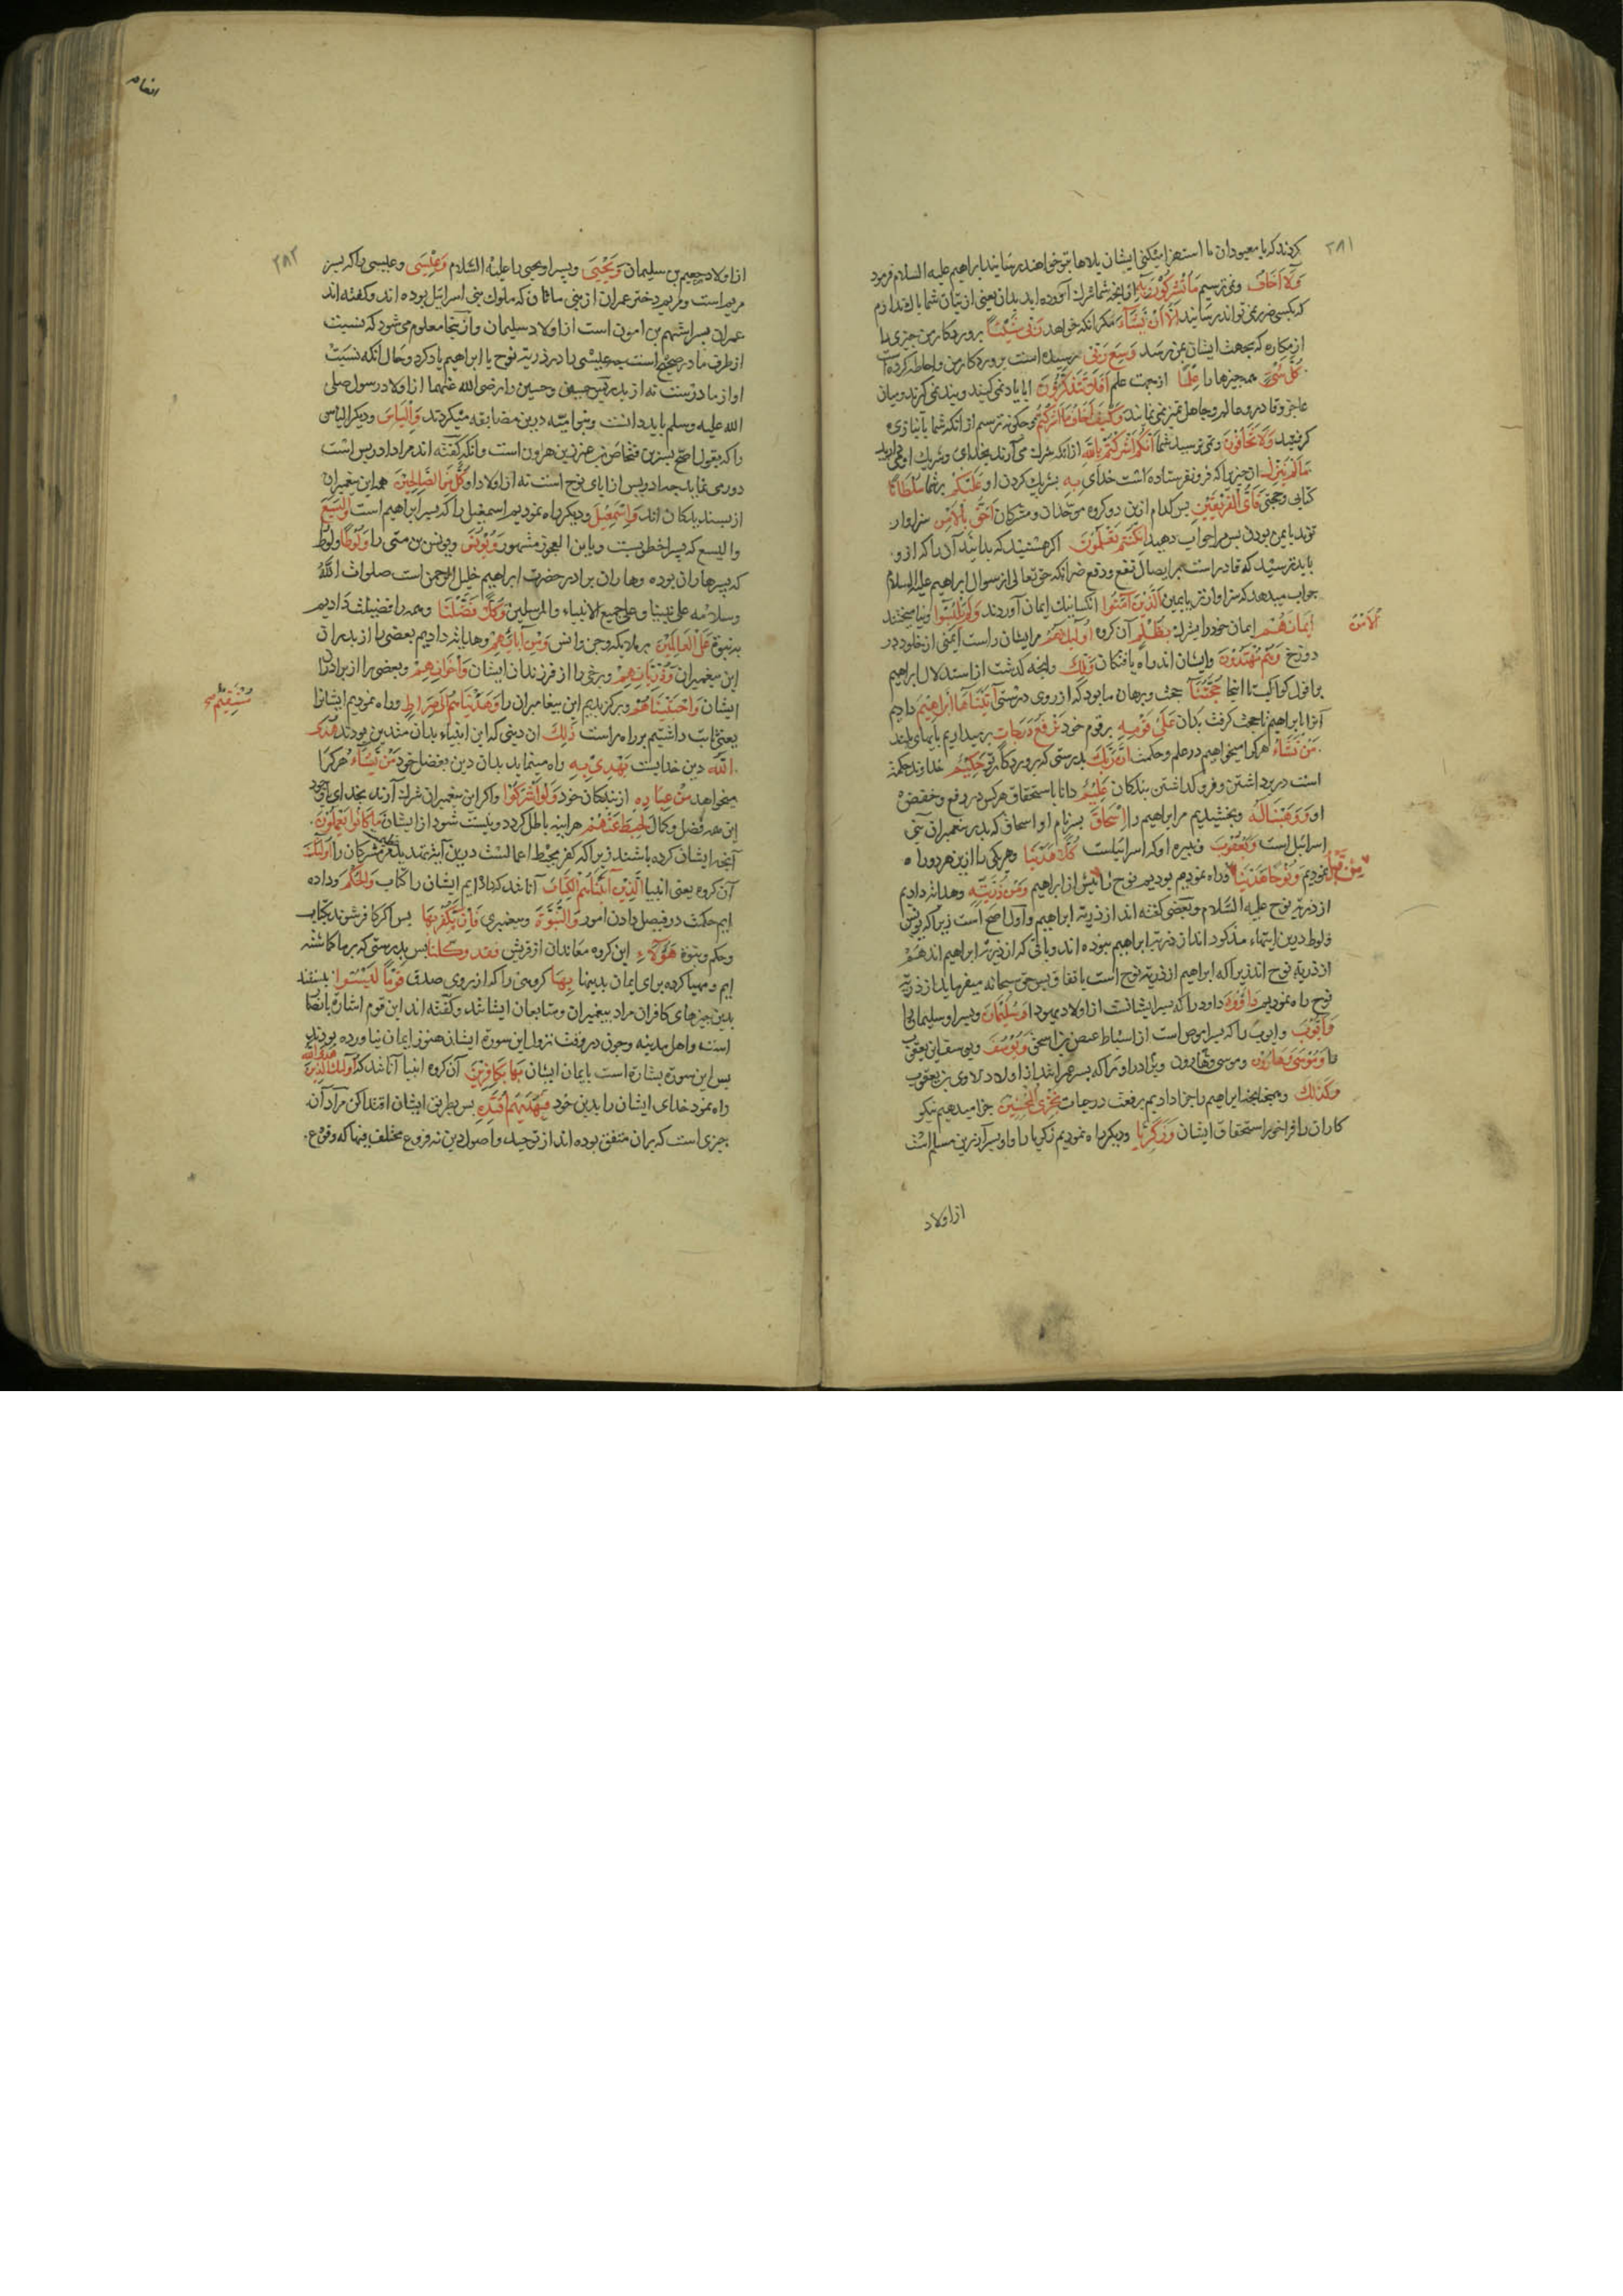 ۲۸۱
کردند که با معبودان ما استهزا میکنی ایشان بلاها بتو خواهند رسانید ابراهیم علیه السلام فرمود
وَلَا اَخَافُ ونمی ترسیم مَا تُشْرِکُوْنَ بِهٖ از آنچه شما شرک آورده اید بدان یعنی از بتان شما باک ندارم
که بکسی ضرر نمی تواند رسانید اِلَّا اَنْ یَّشَآءَ مکر انکه خواهد رَبِّی شَیْئًا پروردکار من چیزی را
از مکاره که بجهت ایشان بمن رسد وَسِعَ رَبِّی رسیده است پروردکار من واحاطه کرده است
کُلَّ شَیْءٍ همه چیزها را عِلْمًا از جهت علم اَفَلَا تَتَذَکَّرُوْنَ ایا یاد نمی کنید و پند نمی کیرند ومیان
عاجز وقادر وعالم وجاهل تمیز نمی نمایند وَکَیْفَ اَخَافُ مَا اَشْرَکْتُمْ وچکونه ترسم از انکه شما بانبازی
کرفتید وَلَا تَخَافُوْنَ ونمی ترسید شما اَنَّکُمْ اَشْرَکْتُمْ بِاللّٰهِ از انکه شرک می آرند بخدای وشریک او می دارید
مَا لَمْ یُنَزِّلْ ان چیز را که فرو نفرستاده است خدای بِهٖ بشریک کردن او عَلَیْکُمْ بر شما سُلْطَانًا
کتابی وحجتی فَاَیُّ الْفَرِیْقَیْنِ پس کدام ازین دو کروه موحدان ومشرکان اَحَقُّ بِالْاَمْنِ سزاوار
تراند بایمن بودن پس مرا جواب دهید اِنْ کُنْتُمْ تَعْلَمُوْنَ اکر هستید که بدانید آن را که ازو
باید ترسید که قادر است بر ایصال نفع ودفع ضر انکه حق تعالی از سوال ابراهیم علیه السلام
جواب میدهد که سزاوارتر بایمن اَلَّذِیْنَ آمَنُوْا انکسانیک ایمان آوردند وَلَمْ یَلْبِسُوْا ونیامیختند
اِیْمَانَهُمْ ایمان خود را بشرک بِظُلْمٍ آن کروه اُولٰٓئِکَ لَهُمْ مر ایشان راست ایمنی از خلود در
الْاَمْنُ
دوزخ وَهُمْ مُهْتَدُوْنَ وایشان اند راه یافتکان وَتِلْکَ وانچه کذشت از استدلال ابراهیم
بافول کواکب تا اینجا حُجَّتُنَا حجت وبرهان ما بود که از روی درستی آتَیْنَاهَا اِبْرَاهِیْمَ دادیم
آنرا بابراهیم تا حجت کرفت بدان عَلٰی قَوْمِهٖ بر قوم خود نَرْفَعُ دَرَجَاتٍ بر میداریم پایهای بلند
مَنْ نَّشَآءُ هر کرا میخواهیم در علم وحکمت اِنَّ رَبَّکَ بدرستی که پروردکار تو حَکِیْمٌ خداوند حکمتـ
است در برداشتن وفرو کذاشتن بندکان عَلِیْمٌ دانا باستحقاق هر کس در رفع وخفض
او وَوَهَبْنَا لَهٗ وبخشیدیم مر ابراهیم را اِسْحَاقَ پسر نام او اسحاق که پدر پیغمبران بنی
اسرائیل است وَیَعْقُوْبَ ونبیره او که اسرائیلست کُلًّا هَدَیْنَا وهر یکی را ازین هر دو راه
نمودیم وَنُوْحًا هَدَیْنَا وراه نموده بودیم نوح را پیش از ابراهیم وَمِنْ ذُرِّیَّتِهٖ وهدایت دادیم
مِنْ قَبْلُ
از ذریه نوح علیه السلام وبعضی کفته اند از ذریه ابراهیم واول اصح است زیرا که یونس
ولوط درین ایتها مذکور اند از ذریه ابراهیم نبوده اند وباقی که از ذریه ابراهیم اند هم
از ذریه نوح اند زیرا که ابراهیم از ذریه نوح است باتفاق پس حق سبحانه میفرماید از ذریه
نوح راه نمودیم دَاوٗدَ داود را که پسر ایشاست از اولاد یهودا وَسُلَیْمَانَ وپسر او سلیمان را
وَاَیُّوْبَ وایوب را که پسر اموص است از اسباط عیص بن اسحق وَیُوْسُفَ ویوسف ابن یعقوب
را وَمُوْسٰی وَهَارُوْنَ وموسی وهارون وبرادر او را که پسر عمران اند از اولاد لاوی بن یعقوب
وَکَذٰلِکَ وهمچنانچه ابراهیم را جزا دادیم برفعت درجات نَجْزِی الْمُحْسِنِیْنَ جزا میدهیم نیکو
کاران را فراخور استحقاق ایشان وَزَکَرِیَّا ودیکر راه نمودیم زکریا را واو پسر آذن بن مسلم است
از اولاد
انعام
۲۸۲
از اولاد رحبعیم بن سلیمان وَیَحْیٰی وپسر او یحیی را علیه السلام وَعِیْسٰی وعیسی را که پسر
مریم است ومریم دختر عمران از بنی ماثان که ملوک بنی اسرائیل بوده اند وکفته اند
عمران پسر اشهم بن امون است از اولاد سلیمان واز اینجا معلوم می شود که نسبت
از طرف مادر صحیح است چه عیسی را در ذریه نوح یا ابراهیم یاد کرد وحال انکه نسبت
او از مادرست نه از پدر پس حسن وحسین را رضی الله عنهما از اولاد رسول صلی
الله علیه وسلم باید دانست وبنو امیه درین مضایقه میکردند وَاِلْیَاسَ ودیکر الیاس
را که بقول اصح پسر بن فنحاص بن عیزر بن هرون است وانکه کفته اند مراد ادریس است
دور می نماید چه ادریس از ابای نوح است نه از اولاد او کُلٌّ مِّنَ الصَّالِحِیْنَ همه این پیغمبران
از پسندیدکان اند وَاِسْمٰعِیْلَ ودیکر راه نمودیم اسمعیل را که پسر ابراهیم است وَالْیَسَعَ
والیسع که پسر اخطوبست ویا ابن العجوز مشهور وَیُوْنُسَ ویونس بن متی را وَلُوْطًا ولوط
که پسر هاران بوده وهاران برادر حضرت ابراهیم خلیل الرحمن است صلوات الله
وسلامه علی نبینا وعلی جمیع الانبیاء والمرسلین وَکُلًّا فَضَّلْنَا وهمه را فضیلت دادیم
به نبوة عَلَی الْعَالَمِیْنَ بر ملائکه وجن وانس وَمِنْ اٰبَآئِهِمْ وهدایت دادیم بعضی را از پدران
این پیغمبران وَذُرِّیَّاتِهِمْ وبرخی را از فرزندان ایشان وَاِخْوَانِهِمْ وبعضی را از برادران
ایشان وَاجْتَبَیْنَاهُمْ وبرکزیدیم این پیغامبران را وَهَدَیْنَاهُمْ اِلٰی صِرَاطٍ وراه نمودیم ایشانرا
مُسْتَقِیْمٍ صح
یعنی ثابت داشتیم بر راه راست ذٰلِکَ ان دینی که این انبیاء بدان متدین بودند هُدَی
اللّٰهِ دین خداست یَهْدِیْ بِهٖ راه مینماید بدان دین بفضل خود مَنْ یَّشَآءُ هر کرا
میخواهد مِنْ عِبَادِهٖ از بندکان خود وَلَوْ اَشْرَکُوْا واکر این پیغمبران شرک آرند بخدای باوجود
این همه فضل وکمال لَحَبِطَ عَنْهُمْ هر اینه باطل کردد ونیست شود از ایشان مَا کَانُوْا یَعْمَلُوْنَ
آنچه ایشان کرده باشند زیرا که کفر محبط اعمالست درین آیت تهدید عظیم مشرکان را اُولٰٓئِکَ
آن کروه یعنی انبیا الَّذِیْنَ آتَیْنَاهُمُ الْکِتَابَ آنانند که داده ایم ایشان را کتاب وَالْحُکْمَ وداده
ایم حکمت در فیصل دادن امور وَالنُّبُوَّةَ وپیغمبری فَاِنْ یَّکْفُرْ بِهَا پس اکر کافر شوند بکتاب
وحکم ونبوة هٰٓؤُلَآءِ این کروه معاندان از قریش فَقَدْ وَکَّلْنَا پس بدرستی که بر ما کماشته
ایم ومهیا کرده برای ایمان بدینها بِهَا کروهی را که از روی صدق قَوْمًا لَیْسُوْا نیستند
بدین چیزهای کافران مراد پیغمبران ومتابعان ایشانند وکفته اند این قوم اشاره بانصار
است واهل مدینه وچون در وقت نزول این سورة ایشان هنوز ایمان نیاورده بودند
پس این سورة بشارة است بایمان ایشان بِهَا بِکَافِرِیْنَ آن کروه انبیا آنانند که اُولٰٓئِکَ الَّذِیْنَ
هَدَی اللّٰهُ
راه نمود خدای ایشان را بدین خود فَبِهُدٰیهُمُ اقْتَدِهْ پس بطریق ایشان اقتدا کن مراد آن
چیزی است که بران متفق بوده اند از توحید واصول دین نه فروع مختلف فیها که وقوع